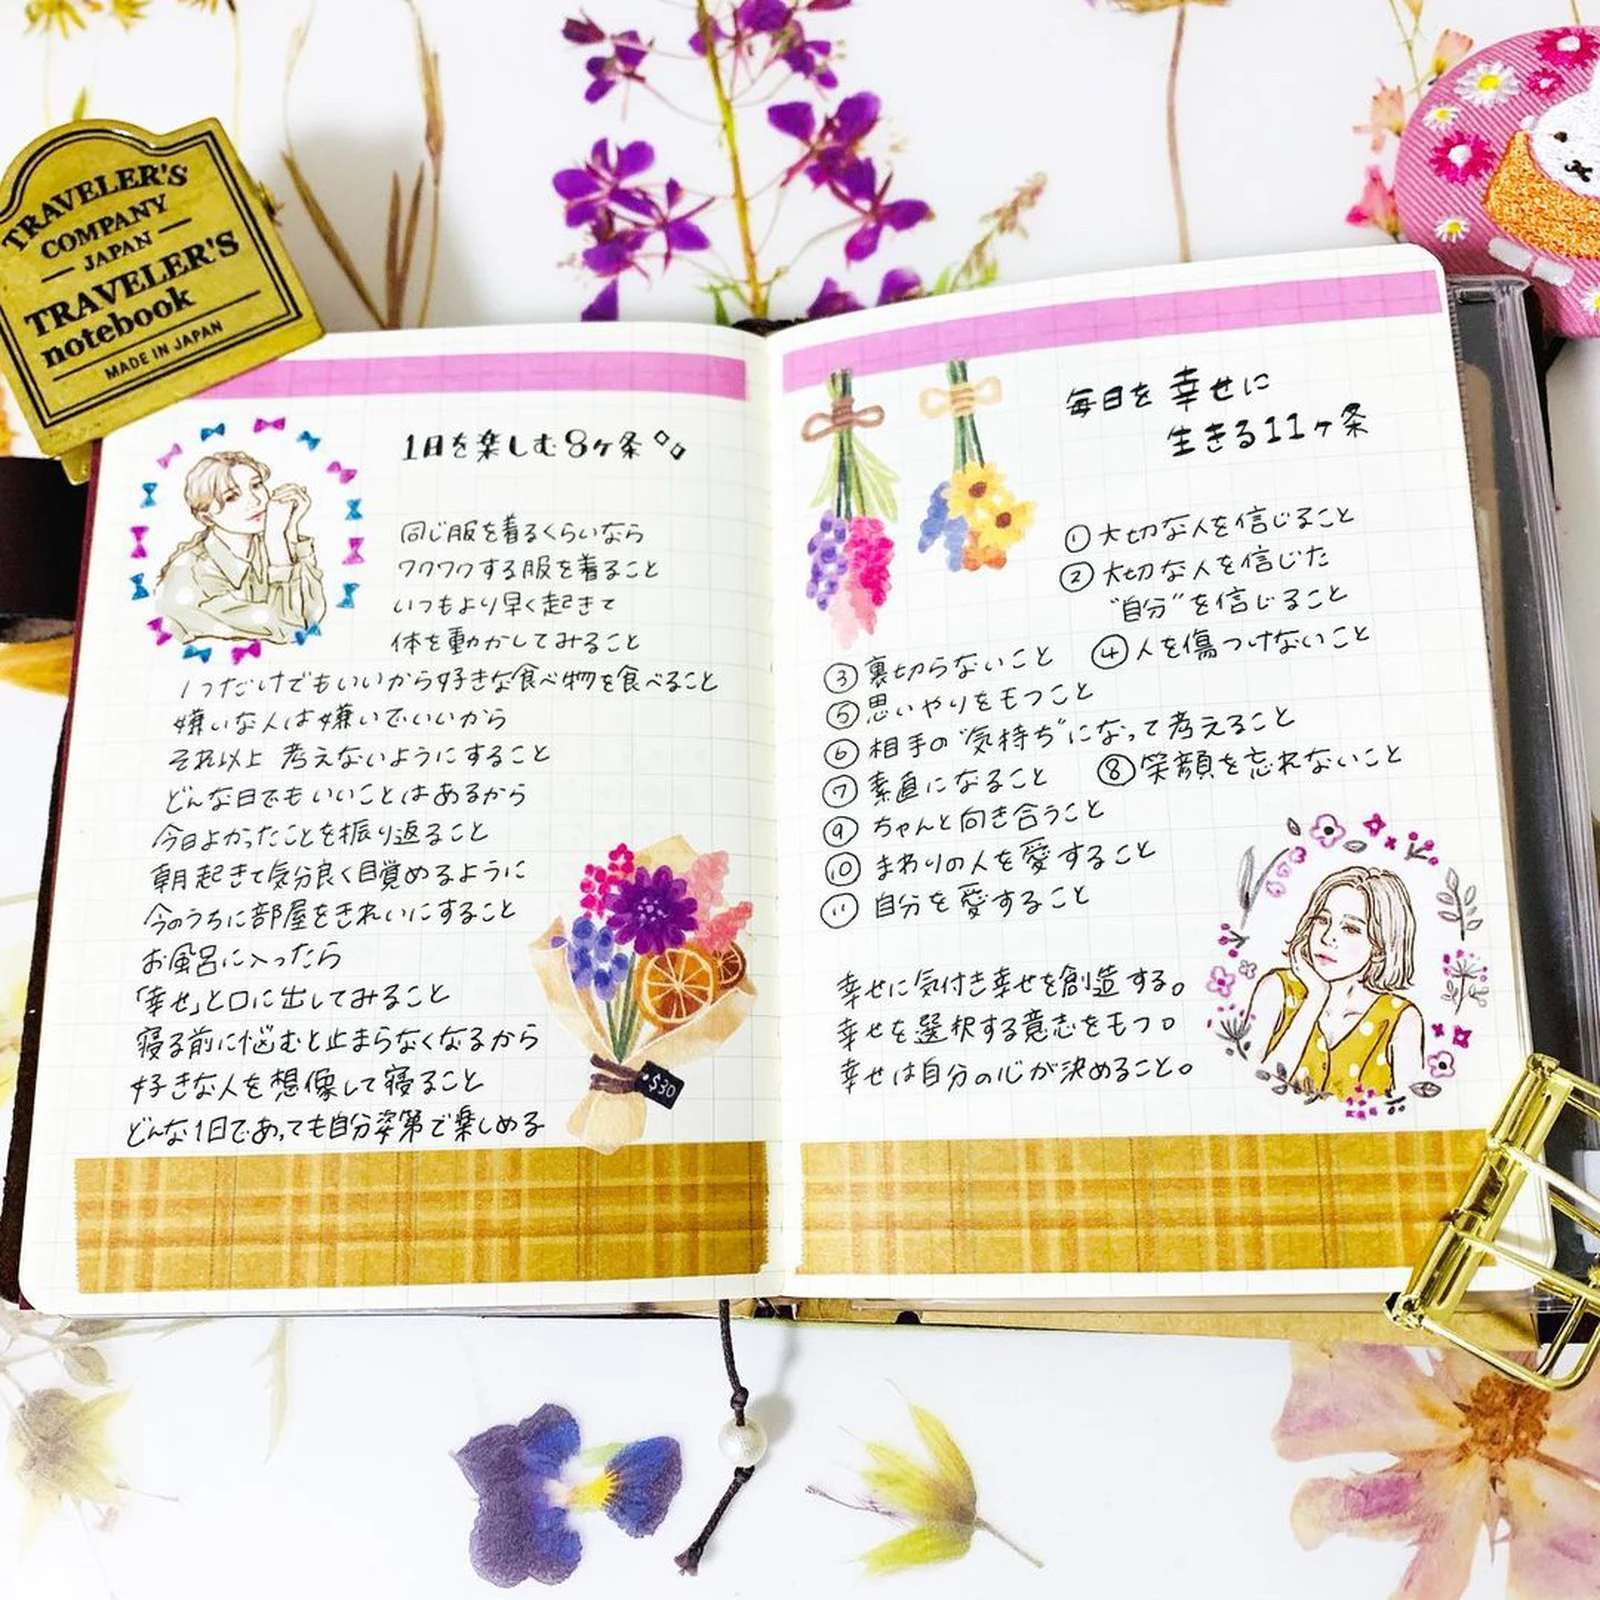 TRAVELER'S
COMPANY
JAPAN
TRAVELER'S
notebook
MADE IN JAPAN
1日を楽しむ8ヶ条
同じ服を着るくらいなら
ワクワクする服を着ること
いつもより早く起きて
体を動かしてみること
1つだけでもいいから好きな食べ物を食べること
嫌いな人は嫌いでいいから
それ以上 考えないようにすること
どんな日でもいいことはあるから
今日よかったことを振り返ること
朝起きて気分良く目覚めるように
今のうちに部屋をきれいにすること
お風呂に入ったら
「幸せ」と口に出してみること
寝る前に悩むと止まらなくなるから
好きな人を想像して寝ること
どんな1日であっても自分姿第で楽しめる
$30
毎日を幸せに
生きる11ヶ条
① 大切な人を信じること
② 大切な人を信じた
"自分"を信じること
③ 裏切らないこと ④ 人を傷つけないこと
⑤ 思いやりをもつこと
⑥ 相手の"気持ち"になって考えること
⑦ 素直になること ⑧ 笑顔を忘れないこと
⑨ ちゃんと向き合うこと
⑩ まわりの人を愛すること
⑪ 自分を愛すること
幸せに気付き幸せを創造する。
幸せを選択する意志をもつ。
幸せは自分の心が決めること。